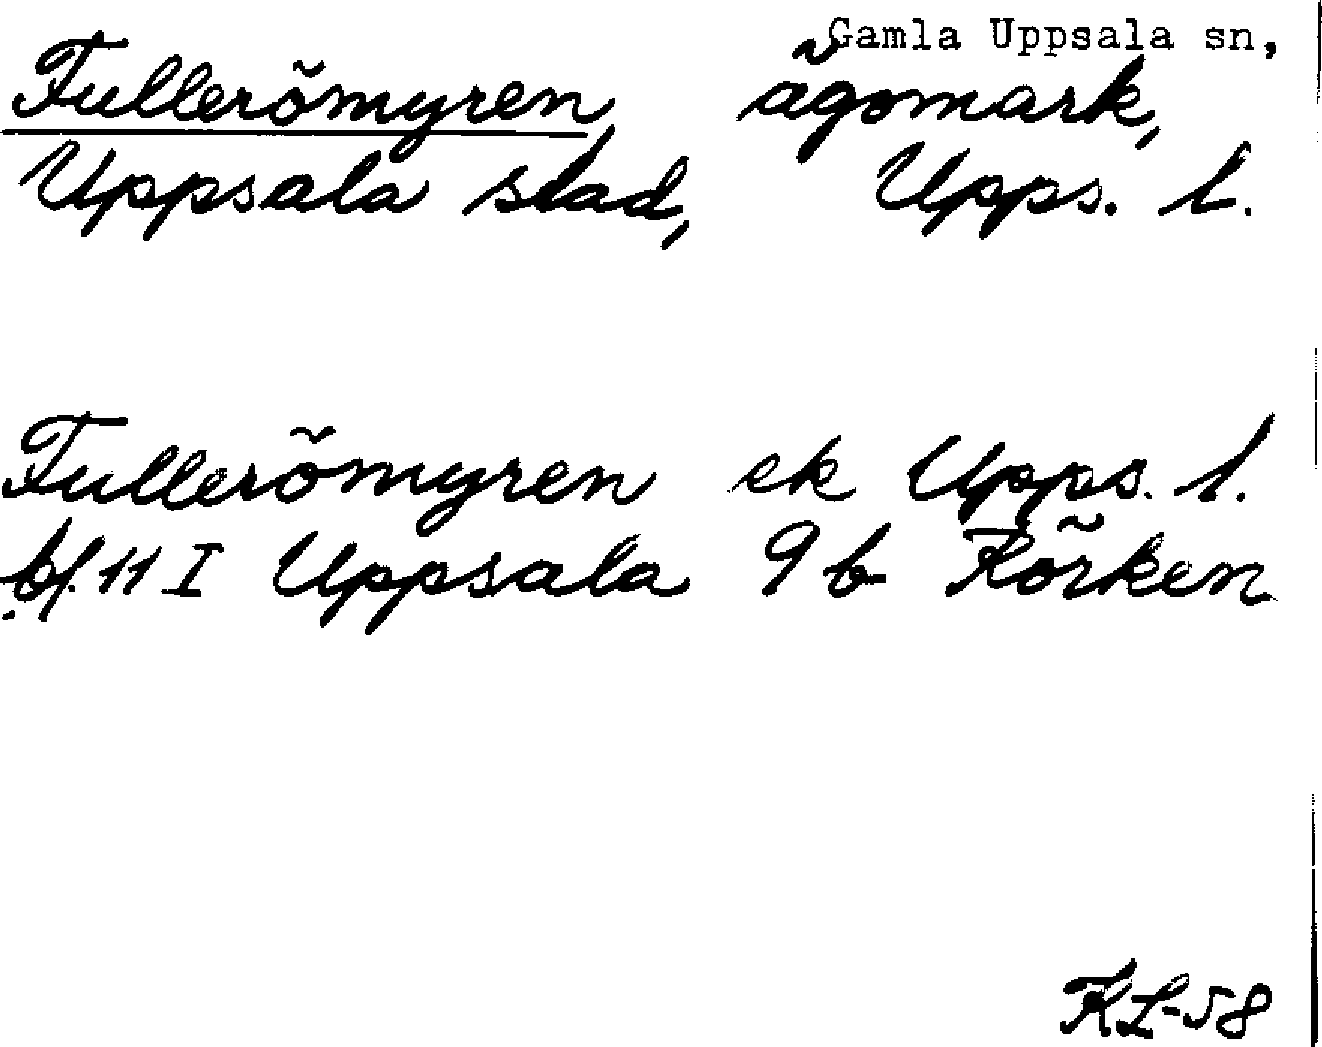 Gamla Uppsala sn,
Fullerömyren, ägomark,
Uppsala stad, Upps. l.
Fullerömyren ek Upps. l.
bl. 11 I Uppsala 9 b Rörken
KL-58